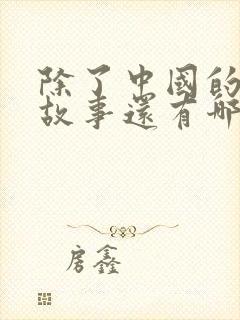 除了中國的
故事還有哪
房鑫